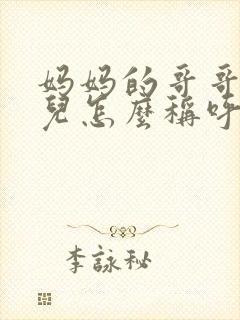 妈妈的哥哥
兒怎麼稱呼
李詠秘